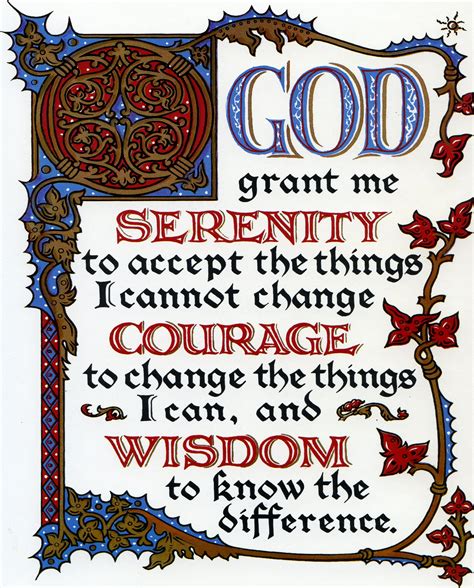 GOD
grant me
SERENITY
to accept the things
I cannot change
COURAGE
to change the things
I can, and
WISDOM
to know the
difference.